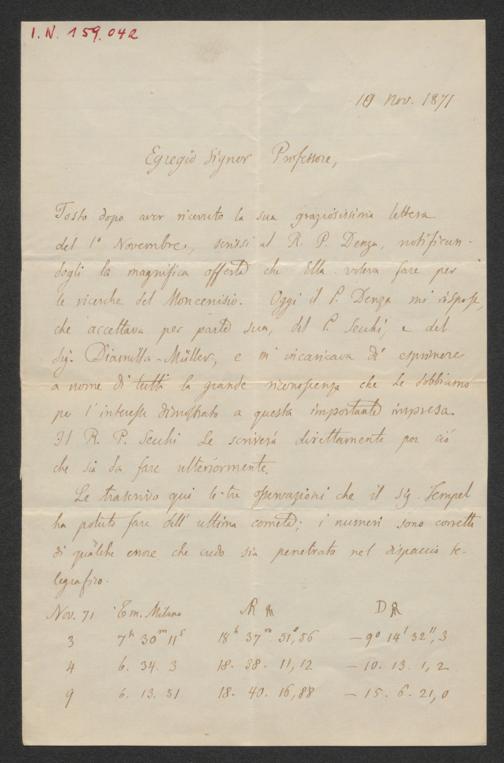 I. N. 159.042
10 Nov. 1871
Egregio Signor Professore,
Tosto dopo aver ricevuto la sua graziosissima lettera
del 1° Novembre, scrissi al R. P. Denza, notifican-
dogli la magnifica offerta che Ella voleva fare per
le ricerche del Moncenisio. Oggi il P. Denza mi rispose,
che accettava per parte sua, del P. Secchi, e del
Sig. Diamilla-Müller, e m'incaricava di esprimere
a nome di tutti la grande riconoscenza che Le dobbiamo
per l'interesse dimostrato a questa importante impresa.
Il R. P. Secchi Le scriverà direttamente per ciò
che sia da fare ulteriormente.
Le trascrivo qui le tre osservazioni che il sig. Tempel
ha potuto fare dell'ultima cometa; i numeri sono corretti
di qualche errore che credo sia penetrato nel dispaccio te-
legrafico.
Nov. 71 T. m. Milano AR D
3 7h 30m 11s 18h 37m 31s,56 — 9° 14' 32",3
4 6. 34. 3 18. 38. 11,12 — 10. 13. 1,2
9 6. 13. 31 18. 40. 16,88 — 15. 6. 21,0